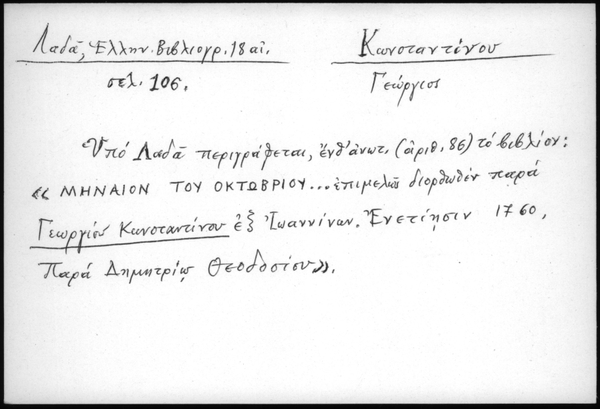 Λαδᾶ, Ἑλλην. Βιβλιογρ. 18 αἰ.
σελ. 106.
Κωνσταντίνου
Γεώργιος
Ὑπό Λαδᾶ περιγράφεται, ἔνθ' ἀνωτ. (ἀριθ. 86) τό βιβλίον:
«ΜΗΝΑΙΟΝ ΤΟΥ ΟΚΤΩΒΡΙΟΥ... ἐπιμελῶς διορθωθέν παρά
Γεωργίου Κωνσταντίνου ἐξ Ἰωαννίνων. Ἐνετίησιν 1760,
Παρά Δημητρίῳ Θεοδοσίου».